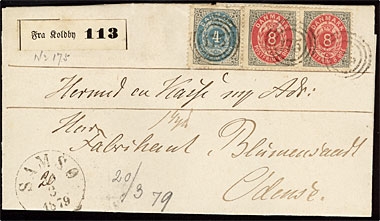 Fra Koldby 113
No 175
DANMARK 4
DANMARK 8
DANMARK 8
Hermed en Kasse ny Adr:
Herr
Fabrikant Blumensaadt
Odense.
SAMSØ
20/3 1879
20/3 79